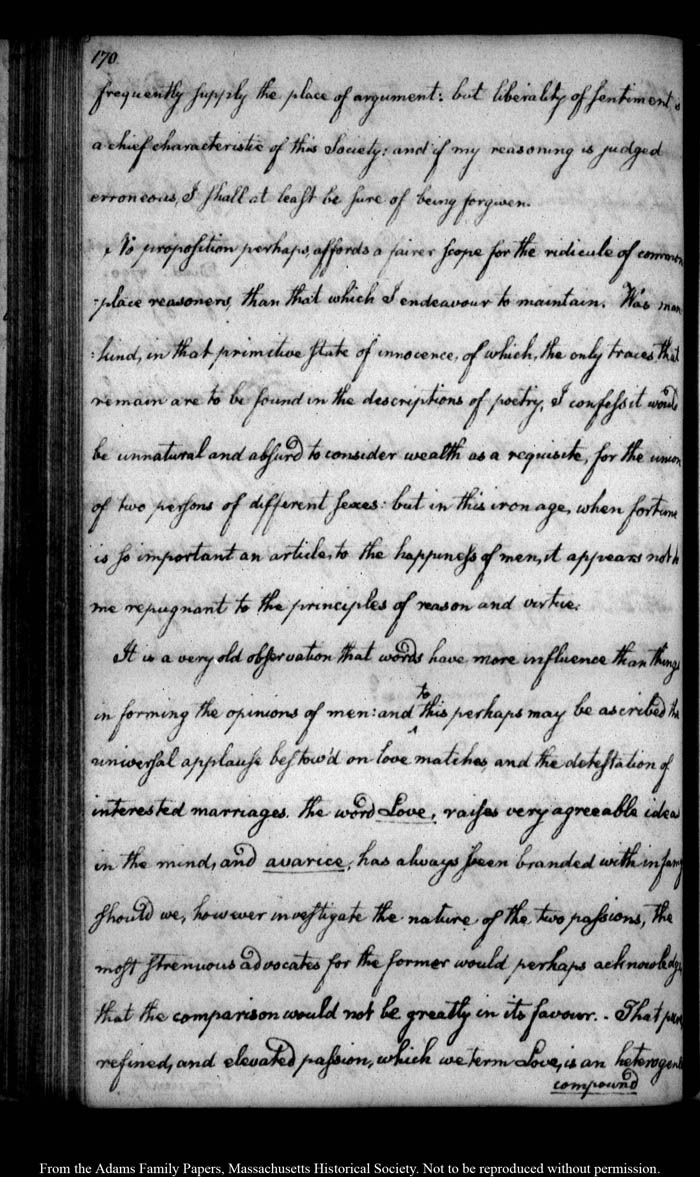 170
frequently supply the place of argument: but liberality of sentiment is
a chief characteristic of this Society: and if my reasoning is judged
erroneous, I shall at least be sure of being forgiven.
No proposition perhaps, affords a fairer scope for the ridicule of common
-place reasoners, than that which I endeavour to maintain. Was man
:kind, in that primitive state of innocence, of which, the only traces that
remain are to be found in the descriptions of poetry, I confess it would
be unnatural and absurd to consider wealth as a requisite, for the union
of two persons of different sexes: but in this iron age, when fortune
is so important an article, to the happiness of men, it appears not to
me repugnant to the principles of reason and virtue.
It is a very old observation that words have more influence than things
in forming the opinions of men: and to this perhaps may be ascribed the
universal applause bestow'd on love matches, and the detestation of
interested marriages. the word Love, raises very agreeable ideas
in the mind, and avarice, has always been branded with infamy
should we, however investigate the nature of the two passions, the
most strenuous advocates for the former would perhaps acknowledge,
that the comparison would not be greatly in its favour. - That pure
refined, and elevated passion, which we term Love, is an heterogen
compound
From the Adams Family Papers, Massachusetts Historical Society. Not to be reproduced without permission.